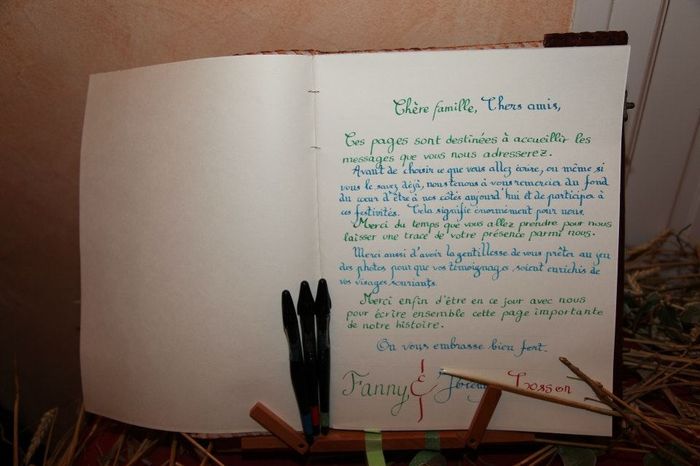 Chère famille, Chers amis,
Ces pages sont destinées à accueillir les
messages que vous nous adresserez.
Avant de choisir ce que vous allez écrire, ou même si
vous le savez déjà, nous tenons à vous remercier du fond
du cœur d'être à nos côtés aujourd'hui et de participer à
ces festivités. Cela signifie énormément pour nous.
Merci du temps que vous allez prendre pour nous
laisser une trace de votre présence parmi nous.
Merci aussi d'avoir la gentillesse de vous prêter au jeu
des photos pour que vos témoignages soient enrichis de
vos visages souriants.
Merci enfin d'être en ce jour avec nous
pour écrire ensemble cette page importante
de notre histoire.
On vous embrasse bien fort.
Fanny &